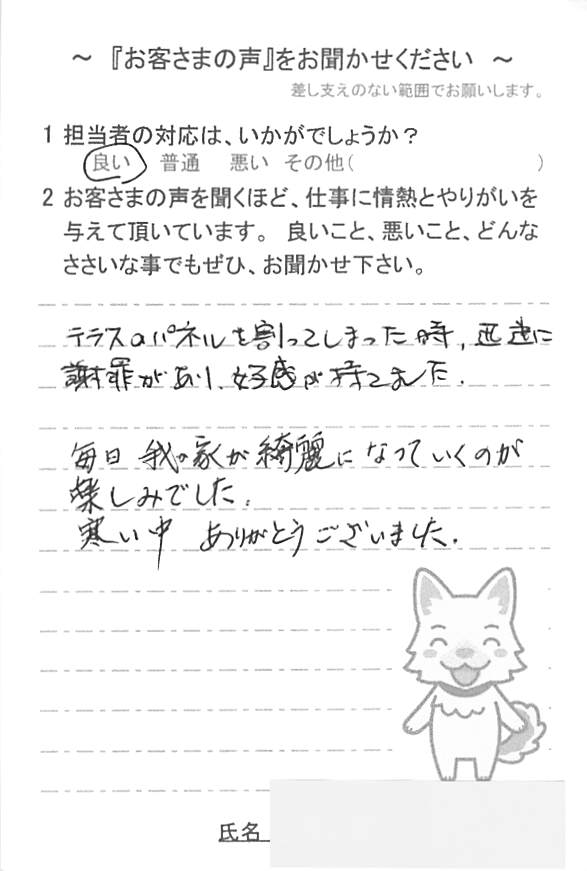 ～ 『お客さまの声』をお聞かせください ～
差し支えのない範囲でお願いします。
1 担当者の対応は、いかがでしょうか？
良い 普通 悪い その他( )
2 お客さまの声を聞くほど、仕事に情熱とやりがいを
与えて頂いています。 良いこと、悪いこと、どんな
ささいな事でもぜひ、お聞かせ下さい。
テラスのパネルを割ってしまった時、迅速に
謝罪があり、好感が持てました。
毎日 我の家が綺麗になっていくのが
楽しみでした。
寒い中 ありがとうございました。
氏名